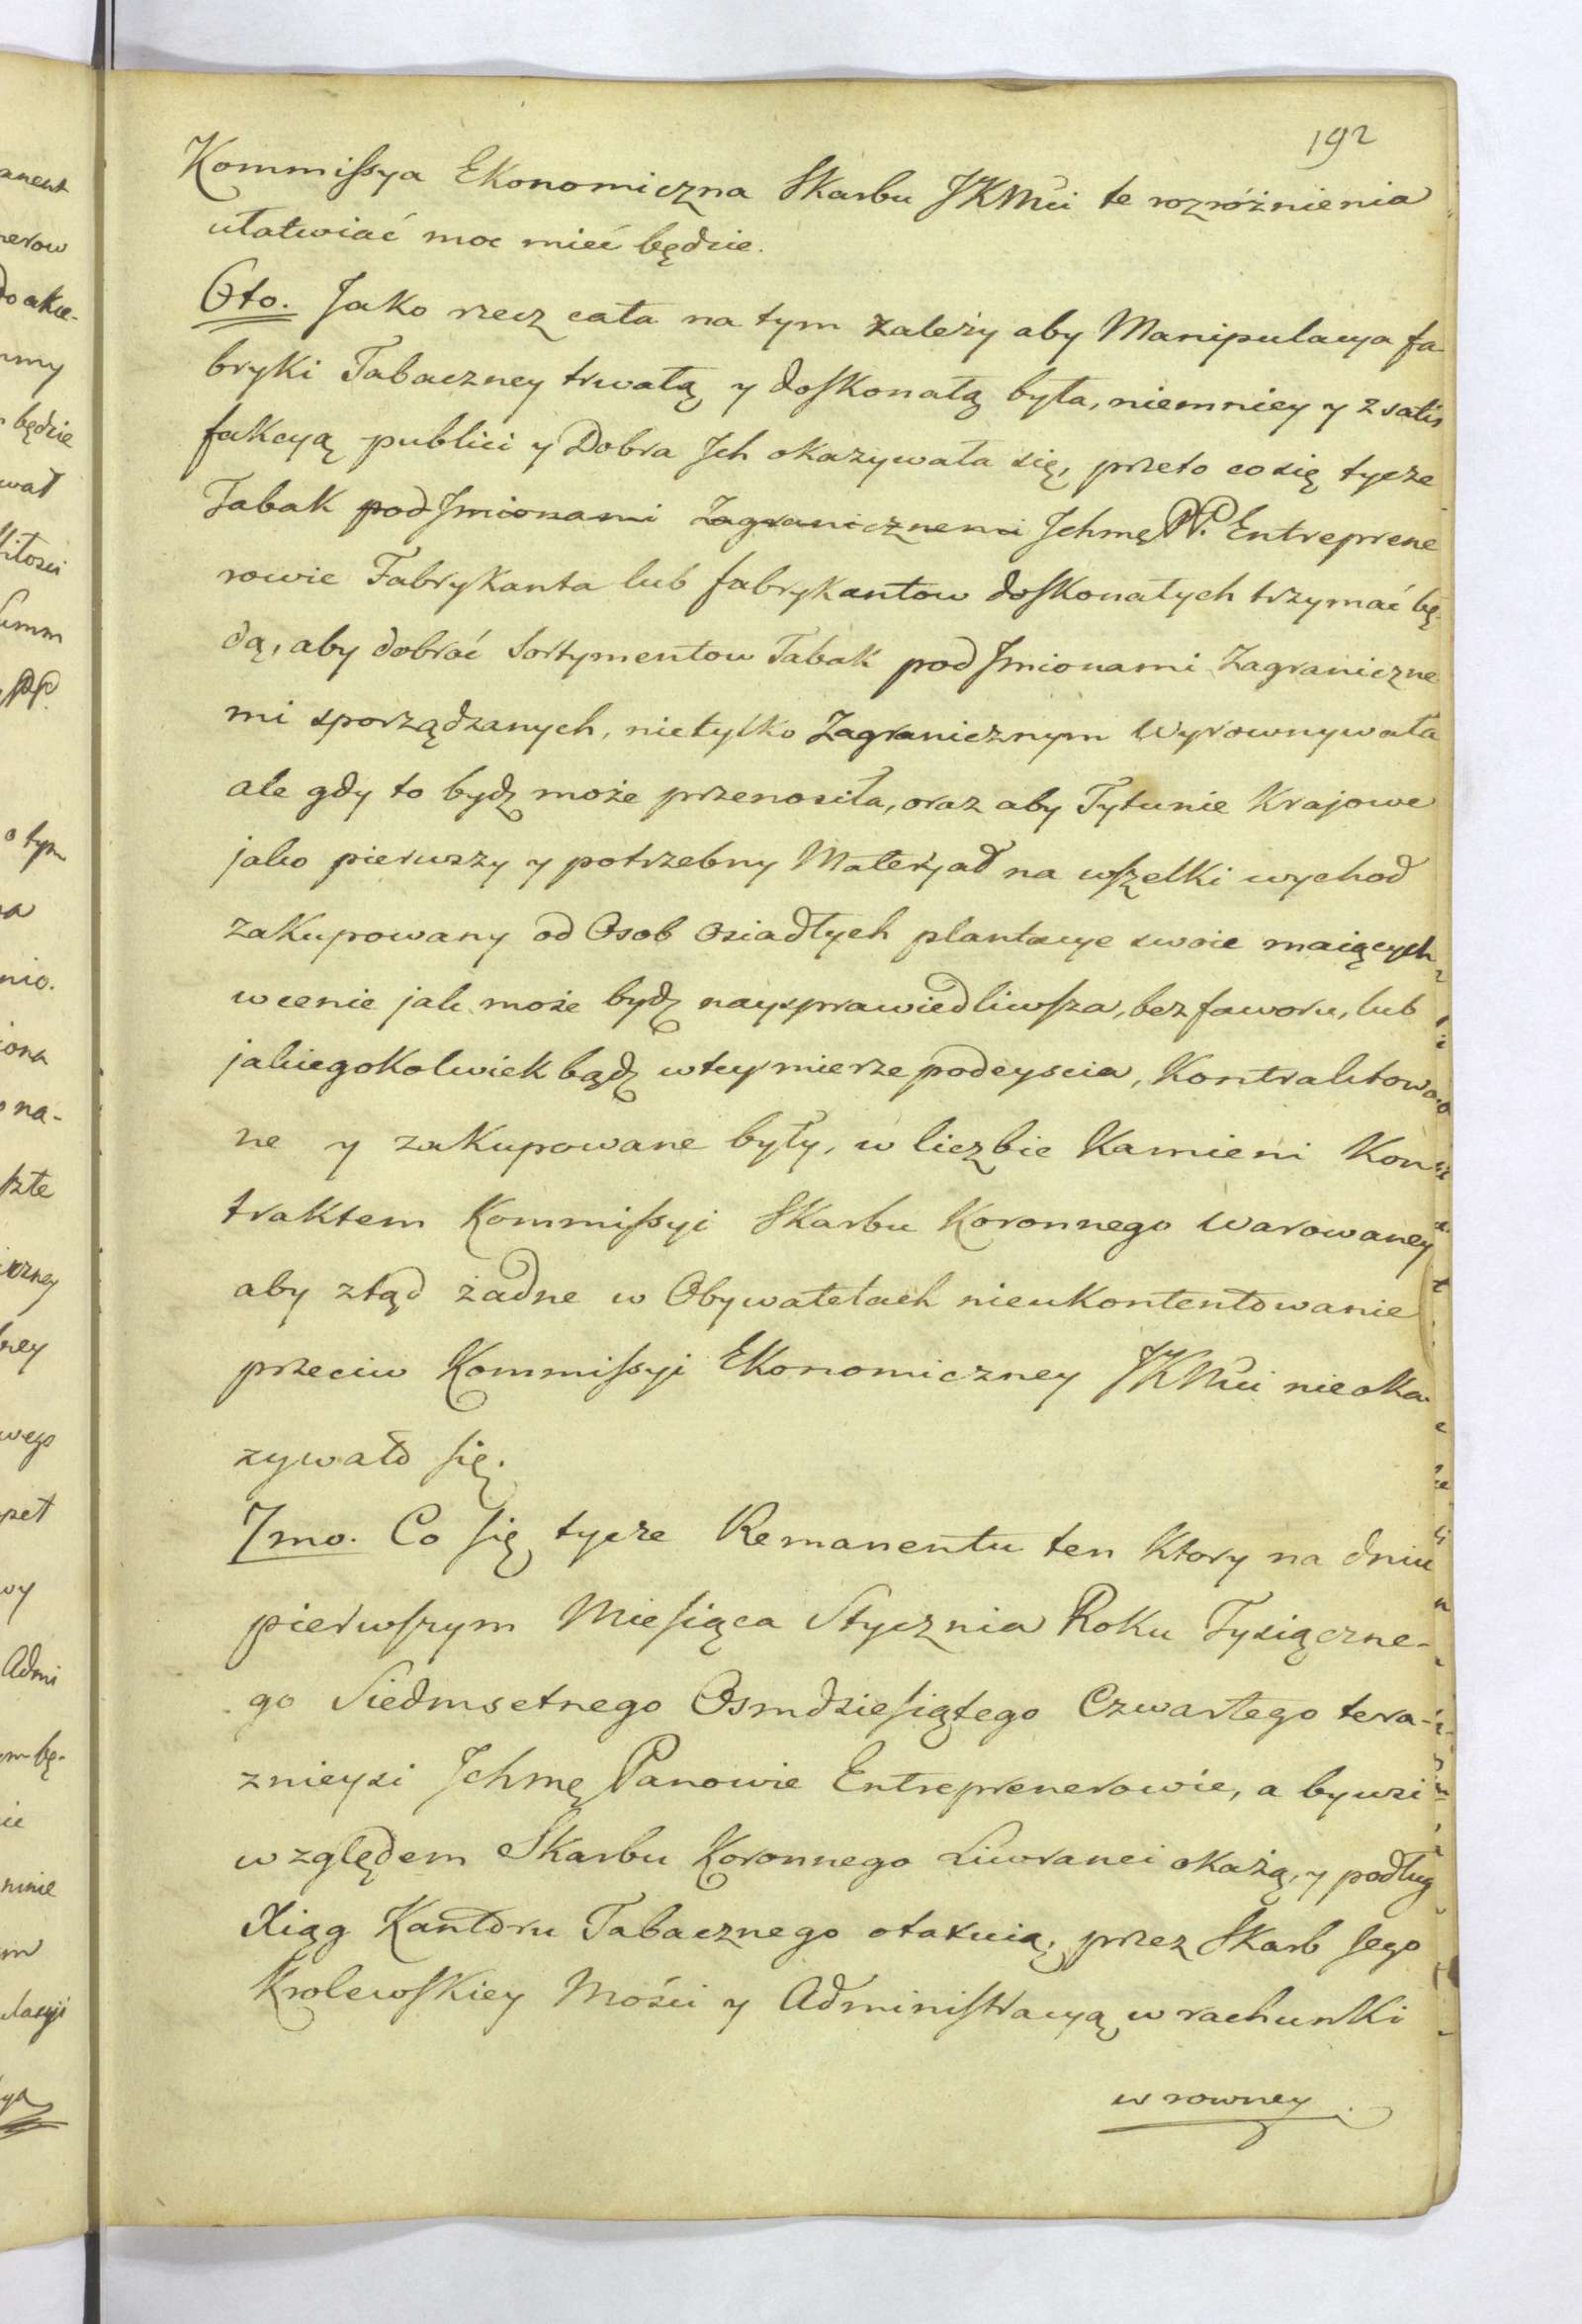 192
Kommissya Ekonomiczna Skarbu JKMci te rozróżnienia
ułatwiać moc mieć będzie.
6to. Jako rzecz cała na tym zależy aby Manipulacya fa-
bryki Tabaczney trwałą y doskonałą była, niemniey y z satis
fakcyą publici y Dobra Jch okazywała się, przeto co się tycze
Tabak pod Jmionami Zagranicznemi Jchmę PP. Entreprene
rowie Fabrykanta lub fabrykantow doskonałych trzymać bę-
dą, aby dobroć Sortymentow Tabak pod Jmionami Zagraniczne
mi sporządzanych, nietylko Zagranicznym wyrownywała
ale gdy to bydź może przenosiła, oraz aby Tytunie Krajowe
jako pierwszy y potrzebny Materyał na wszelki wychod
zakupowany od Osob Osiadłych plantacye swoie maiących
w cenie jak może bydź naysprawiedliwsza, bez faworu, lub
jakiegokolwiek bądź w tey mierze podeyscia, Kontraktowa-
ne y zakupowane były, w liczbie Kamieni Kon
traktem Kommissyi Skarbu Koronnego warowaney
aby ztąd żadne w Obywatelach nieukontentowanie
przeciw Kommissyi Ekonomiczney JKMci nie oka
zywało się.
7mo. Co się tycze Remanentu ten Ktory na dniu
pierwszym Miesiąca Stycznia Roku Tysiączne-
go Siedmsetnego Osmdziesiątego Czwartego tera-
znieysi Jchmę Panowie Entreprenerowie, a bywsi
względem Skarbu Koronnego Liwranci okażą, y podług
Xiąg Kantoru Tabacznego otaxuią, przez Skarb Jego
Krolewskiey Mości y Administracyą w rachunki
w rowney